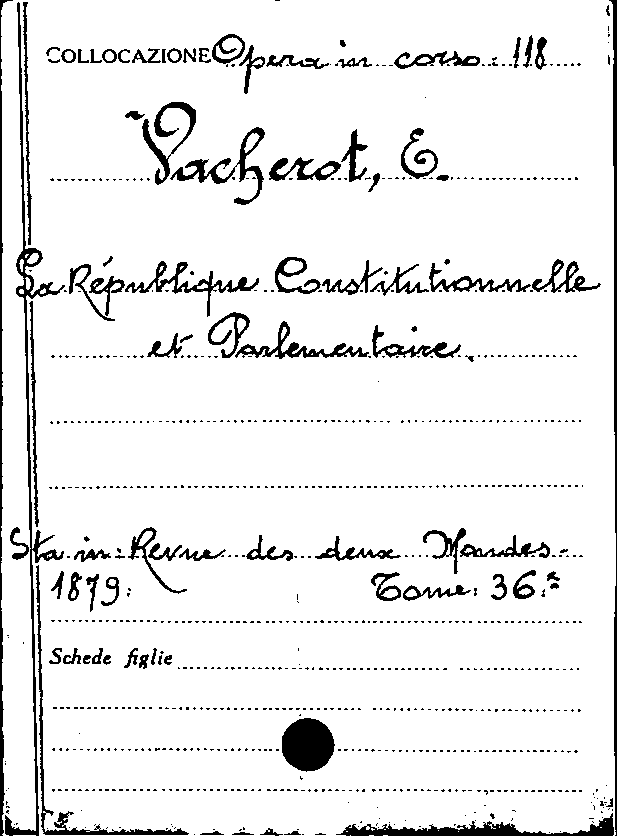 COLLOCAZIONE Opera in corso. 118
Vacherot, E.
La République Constitutionnelle
et Parlementaire.
Sta in: Revue des deux Mondes.
1879. Tome: 36.
Schede figlie